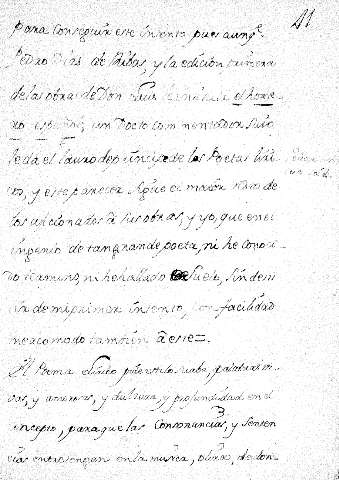 41
Para conseguir este intento pues aunq.e
Pedro Dias de Ribas, y la edicion primera
de las obras de Don Luis le intitula el home-
ro español, un Docto comentador suio
le da el lauro de principe de los Poetas liri-
cos, y este parecer sigue el maior numero de
los aficionados a sus obras, y yo, que en el
ingenio de tan grande poeta, ni he conoci-
do termino, ni he hallado suelo, sin desis-
tir de mi primer intento, con facilidad
me acomodo tambien a este=
El Poema lirico pide estilo suabe, palabras vi-
vas, y amorosas, y dulzura, y profundidad en el
concepto, para que las consonancias, y senten-
cias entretengan en la musica, de don-